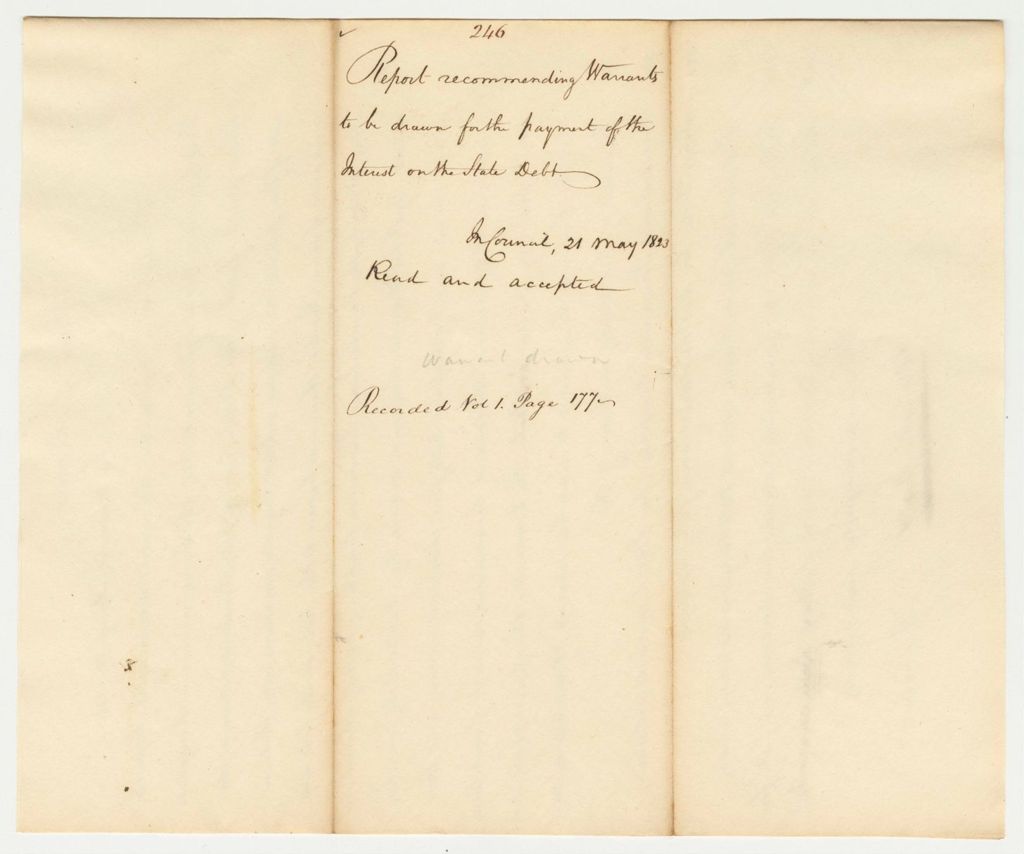 246
Report recommending Warrants
to be drawn for the payment of the
Interest on the State Debt
In Council, 21 May 1823
Read and accepted
Warrant drawn
Recorded Vol 1. Page 177